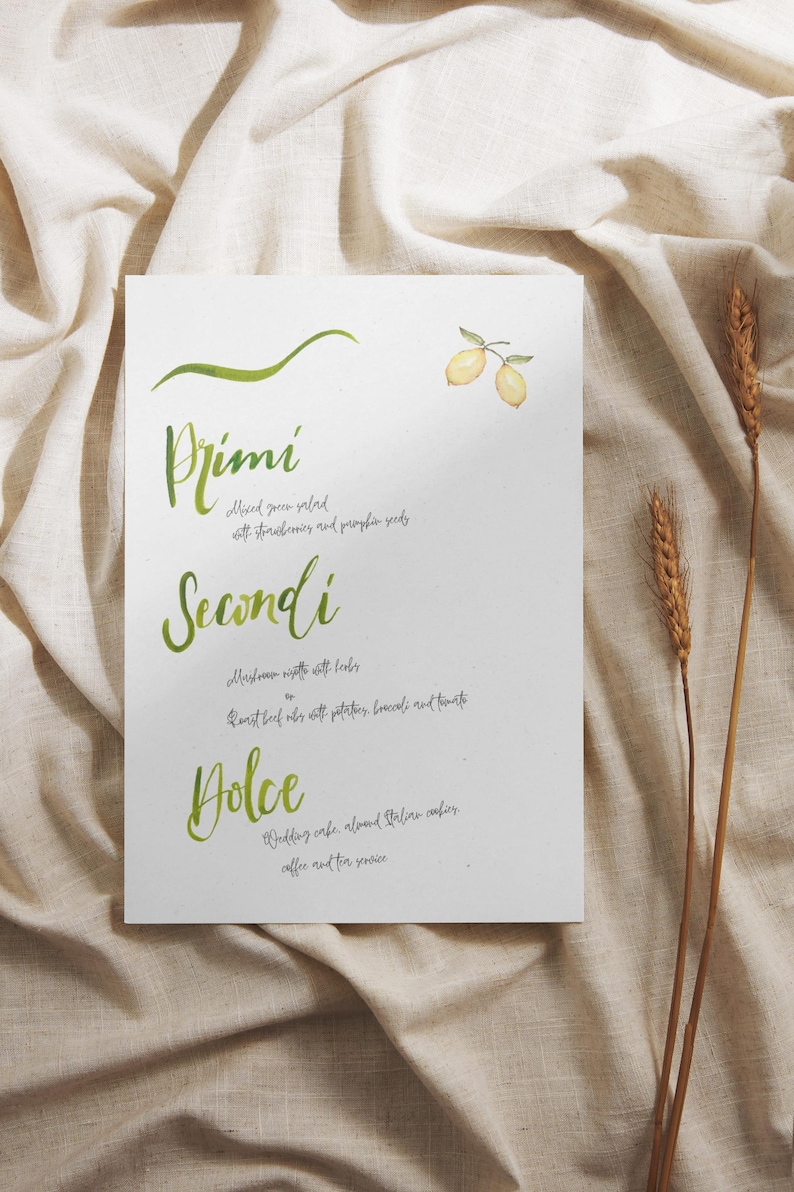 Primi
Mixed green salad
with strawberries and pumpkin seeds
Secondi
Mushroom risotto with herbs
or
Roast beef ribs with potatoes, broccoli and tomato
Dolce
Wedding cake, almond Italian cookies,
coffee and tea service